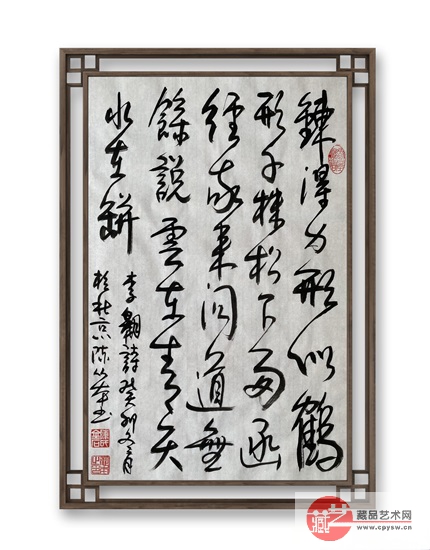 鍊得身形似鶴
形千株松下兩函
經我來問道無
餘說雲在青天
水在缾
李翱詩癸卯冬月
於北京陳書
藏艺
藏品艺术网
www.cpysw.cn